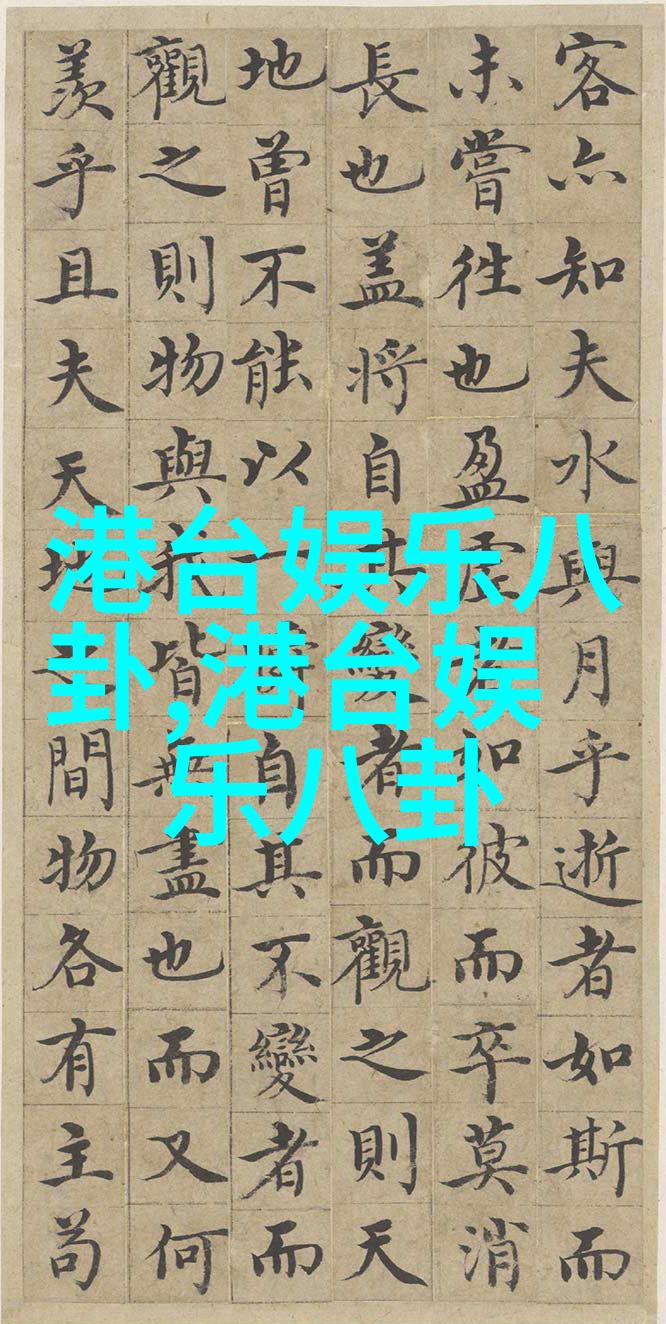 客亦知夫水與月乎逝者如斯而
未嘗往也盈虛者如彼而卒莫消
長也盖將自其變者而觀之則天
地曾不能以一自其不變者而
觀之則物與我皆無盡也而又何
羨乎且夫天地之間物各有主苟
港台娱乐八
卦,港台娱
乐八卦